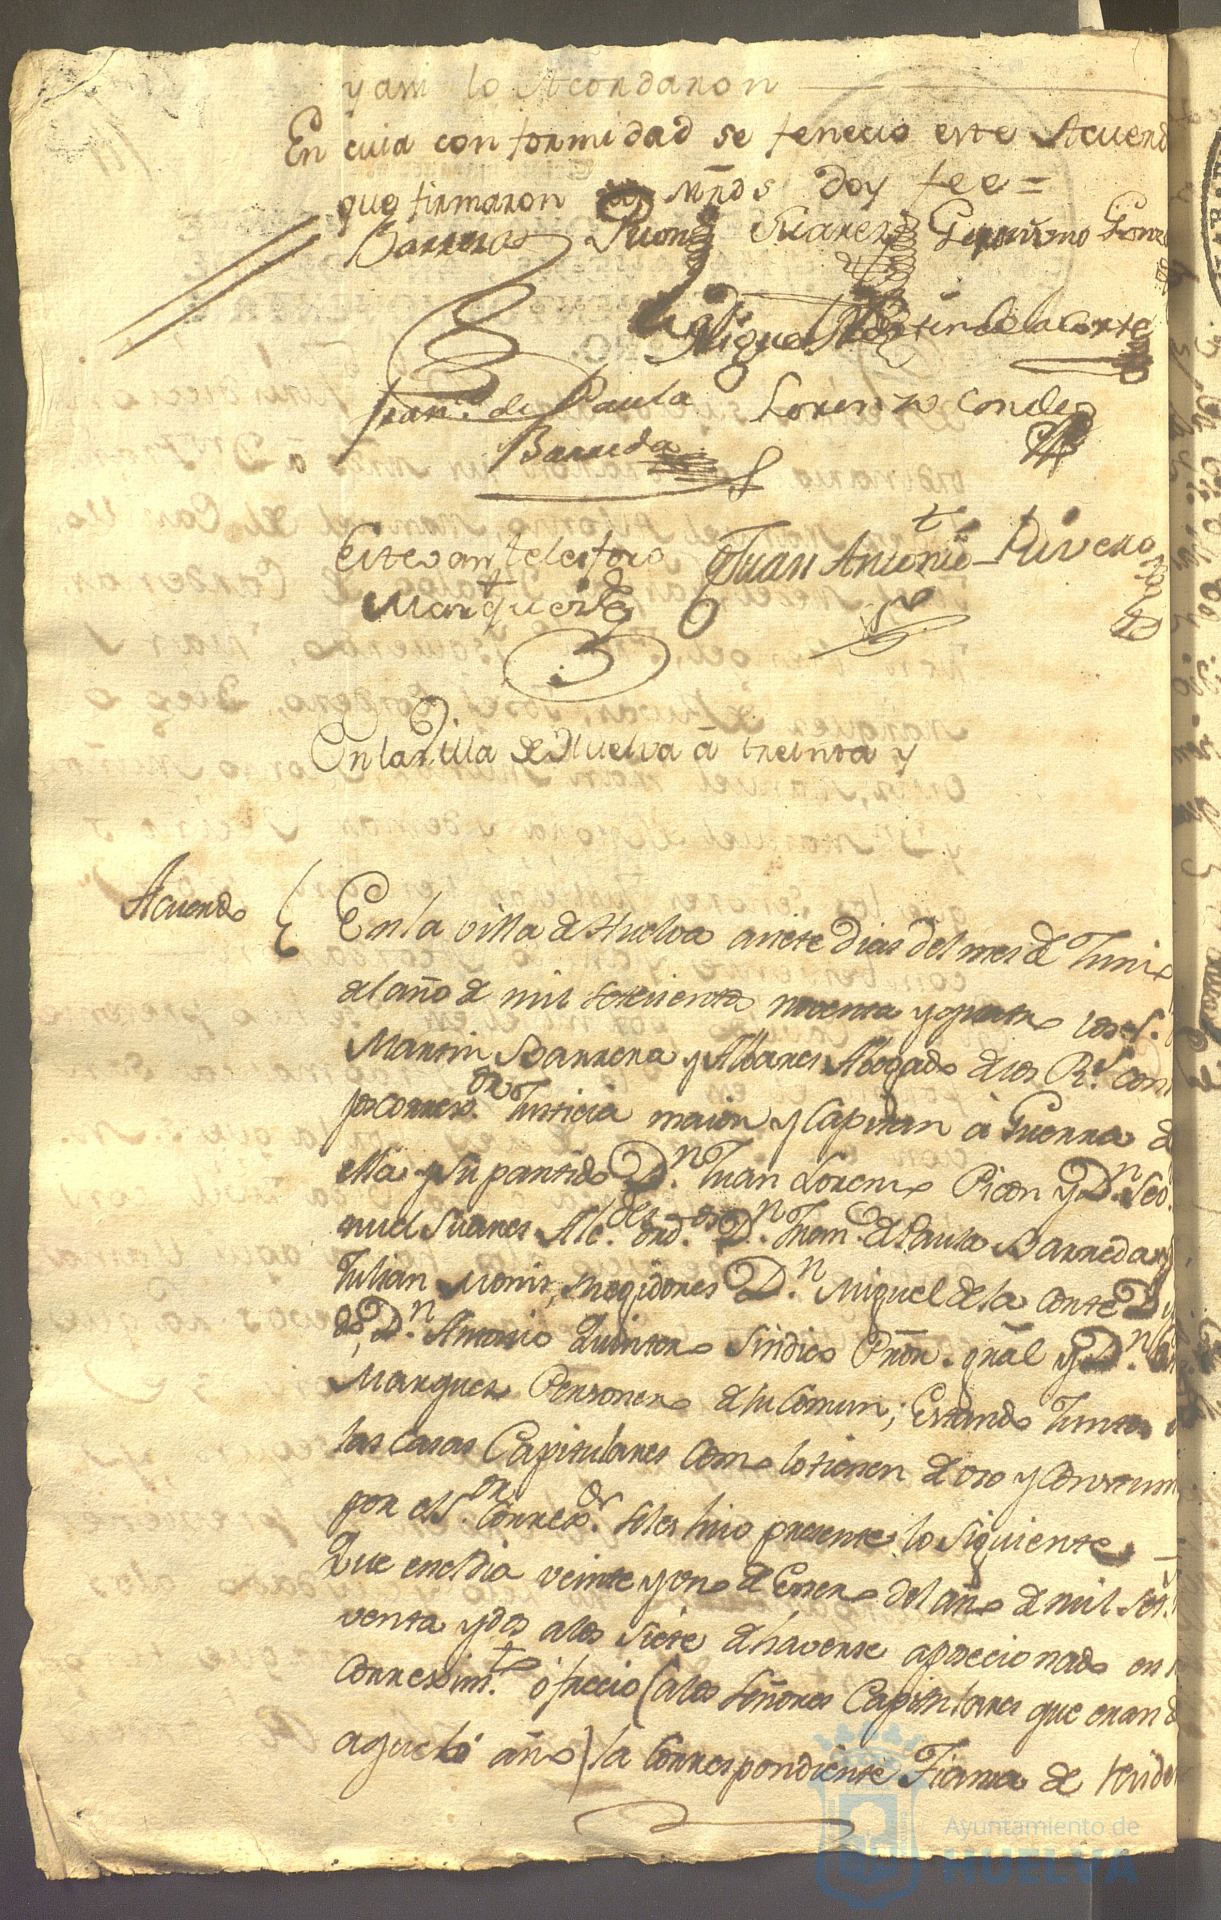 y assi lo Acordaron
En cuia conformidad se feneció este Acuerd
que firmaron sus Mrds doy fee =
Barrera Picon Suares Geronimo Gonza
Miguel Martin de la Corte
Fran.co de Paula Lorenzo Conde
Barreda
Estevan Telesforo Juan Antonio Rivero
Marquez
En la Villa de Huelva â treinta y
Acuerdo
En la villa de Huelva a siete dias del mes de Juni
del año de mil setecientos noventa y quatro los S.
Martin Barrera y Albares Abogado de los R.s Con
jos Correx.or Justicia maior y Capitan â Guerra de
ella y su partido D.n Juan Lorenzo Picon y D.n
nuel Suares Alc.des ord.os D.n Fran.co de Paula Barreda y
Julian Moniz, Regidores D.n Miguel de la Corte D
D.n Antonio Quintero Sindico Pror. gral y D.n
Marquez Personero de su Comun; Estando Juntos
las Casas Capitulares como lo tienen de uso y Costum
por el S.or Correx.or se les hizo presente lo siguiente
Que en el dia veinte y uno de Enero del año de mil set.
venta y dos a los siete de haverse aposecionado en
Correxim.to ofrecio (a los Señores Capitulares que eran de
aquel año) la Correspondiente Fianza de
Ayuntamiento de
HUELVA